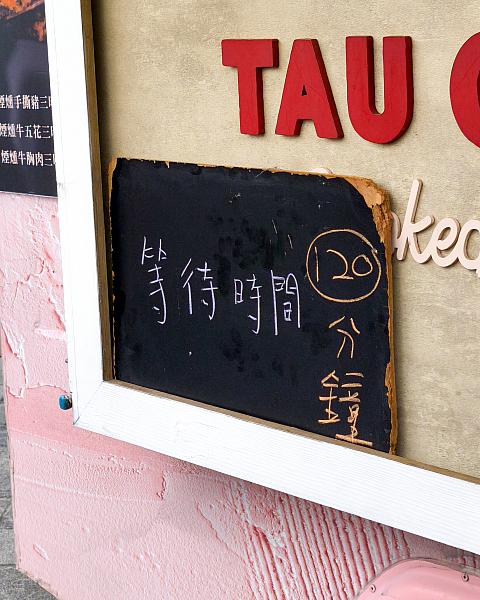 煙燻手撕豬三
煙燻牛五花三
煙燻牛胸肉三
TAU
ked
等待時間
120
分鐘